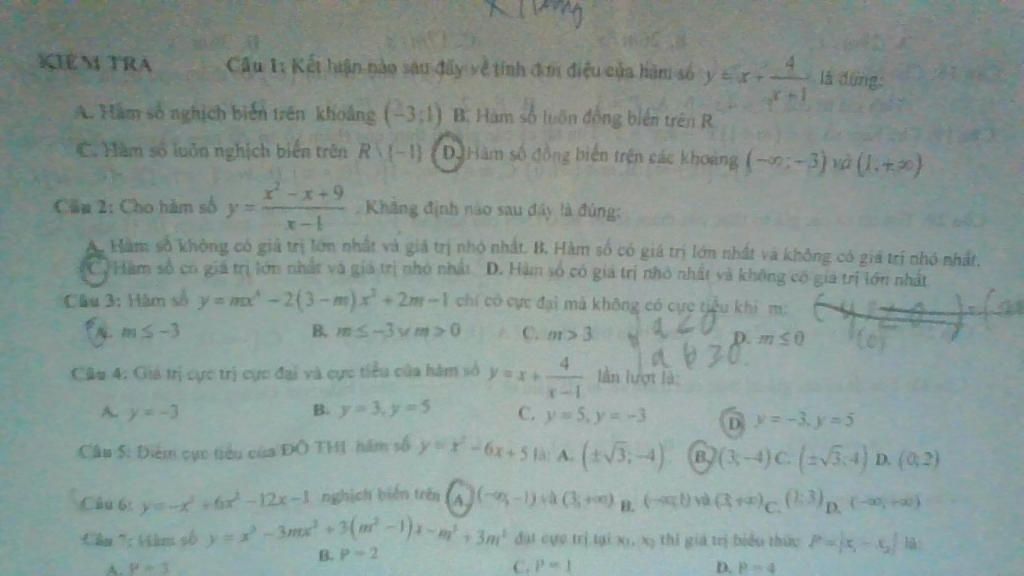 KIỂM TRA Câu 1: Kết luận nào sau đây về tính đơn điệu của hàm số y = x + 4/(x+1) là đúng:
A. Hàm số nghịch biến trên khoảng (−3;1) B. Hàm số luôn đồng biến trên R
C. Hàm số luôn nghịch biến trên R\{−1} D. Hàm số đồng biến trên các khoảng (−∞;−3) và (1;+∞)
Câu 2: Cho hàm số y = (x² − x + 9)/(x−1). Khẳng định nào sau đây là đúng:
A. Hàm số không có giá trị lớn nhất và giá trị nhỏ nhất. B. Hàm số có giá trị lớn nhất và không có giá trị nhỏ nhất.
C. Hàm số có giá trị lớn nhất và giá trị nhỏ nhất D. Hàm số có giá trị nhỏ nhất và không có giá trị lớn nhất
Câu 3: Hàm số y = mx⁴ − 2(3−m)x² + 2m − 1 chỉ có cực đại mà không có cực tiểu khi m:
A. m ≤ −3 B. m ≤ −3 ∨ m > 0 C. m > 3 D. m ≤ 0
a<0
ab≥0
Câu 4: Giá trị cực trị cực đại và cực tiểu của hàm số y = x + 4/(x−1) lần lượt là:
A. y = −3 B. y = 3, y = 5 C. y = 5, y = −3 D. y = −3, y = 5
Câu 5: Điểm cực tiểu của ĐỒ THỊ hàm số y = x² − 6x + 5 là: A. (±√3;−4) B. (3;−4) C. (±√3;4) D. (0;2)
Câu 6: y = −x³ + 6x² − 12x − 1 nghịch biến trên A. (−∞;−1) và (3;+∞) B. (−∞;1) và (3;+∞) C. (1;3) D. (−∞;+∞)
Câu 7: Hàm số y = x³ − 3mx² + 3(m² − 1)x − m³ + 3m² đạt cực trị tại x₁, x₂ thì giá trị biểu thức P = |x₁ − x₂| là:
A. P = 3 B. P = 2 C. P = 1 D. P = 4